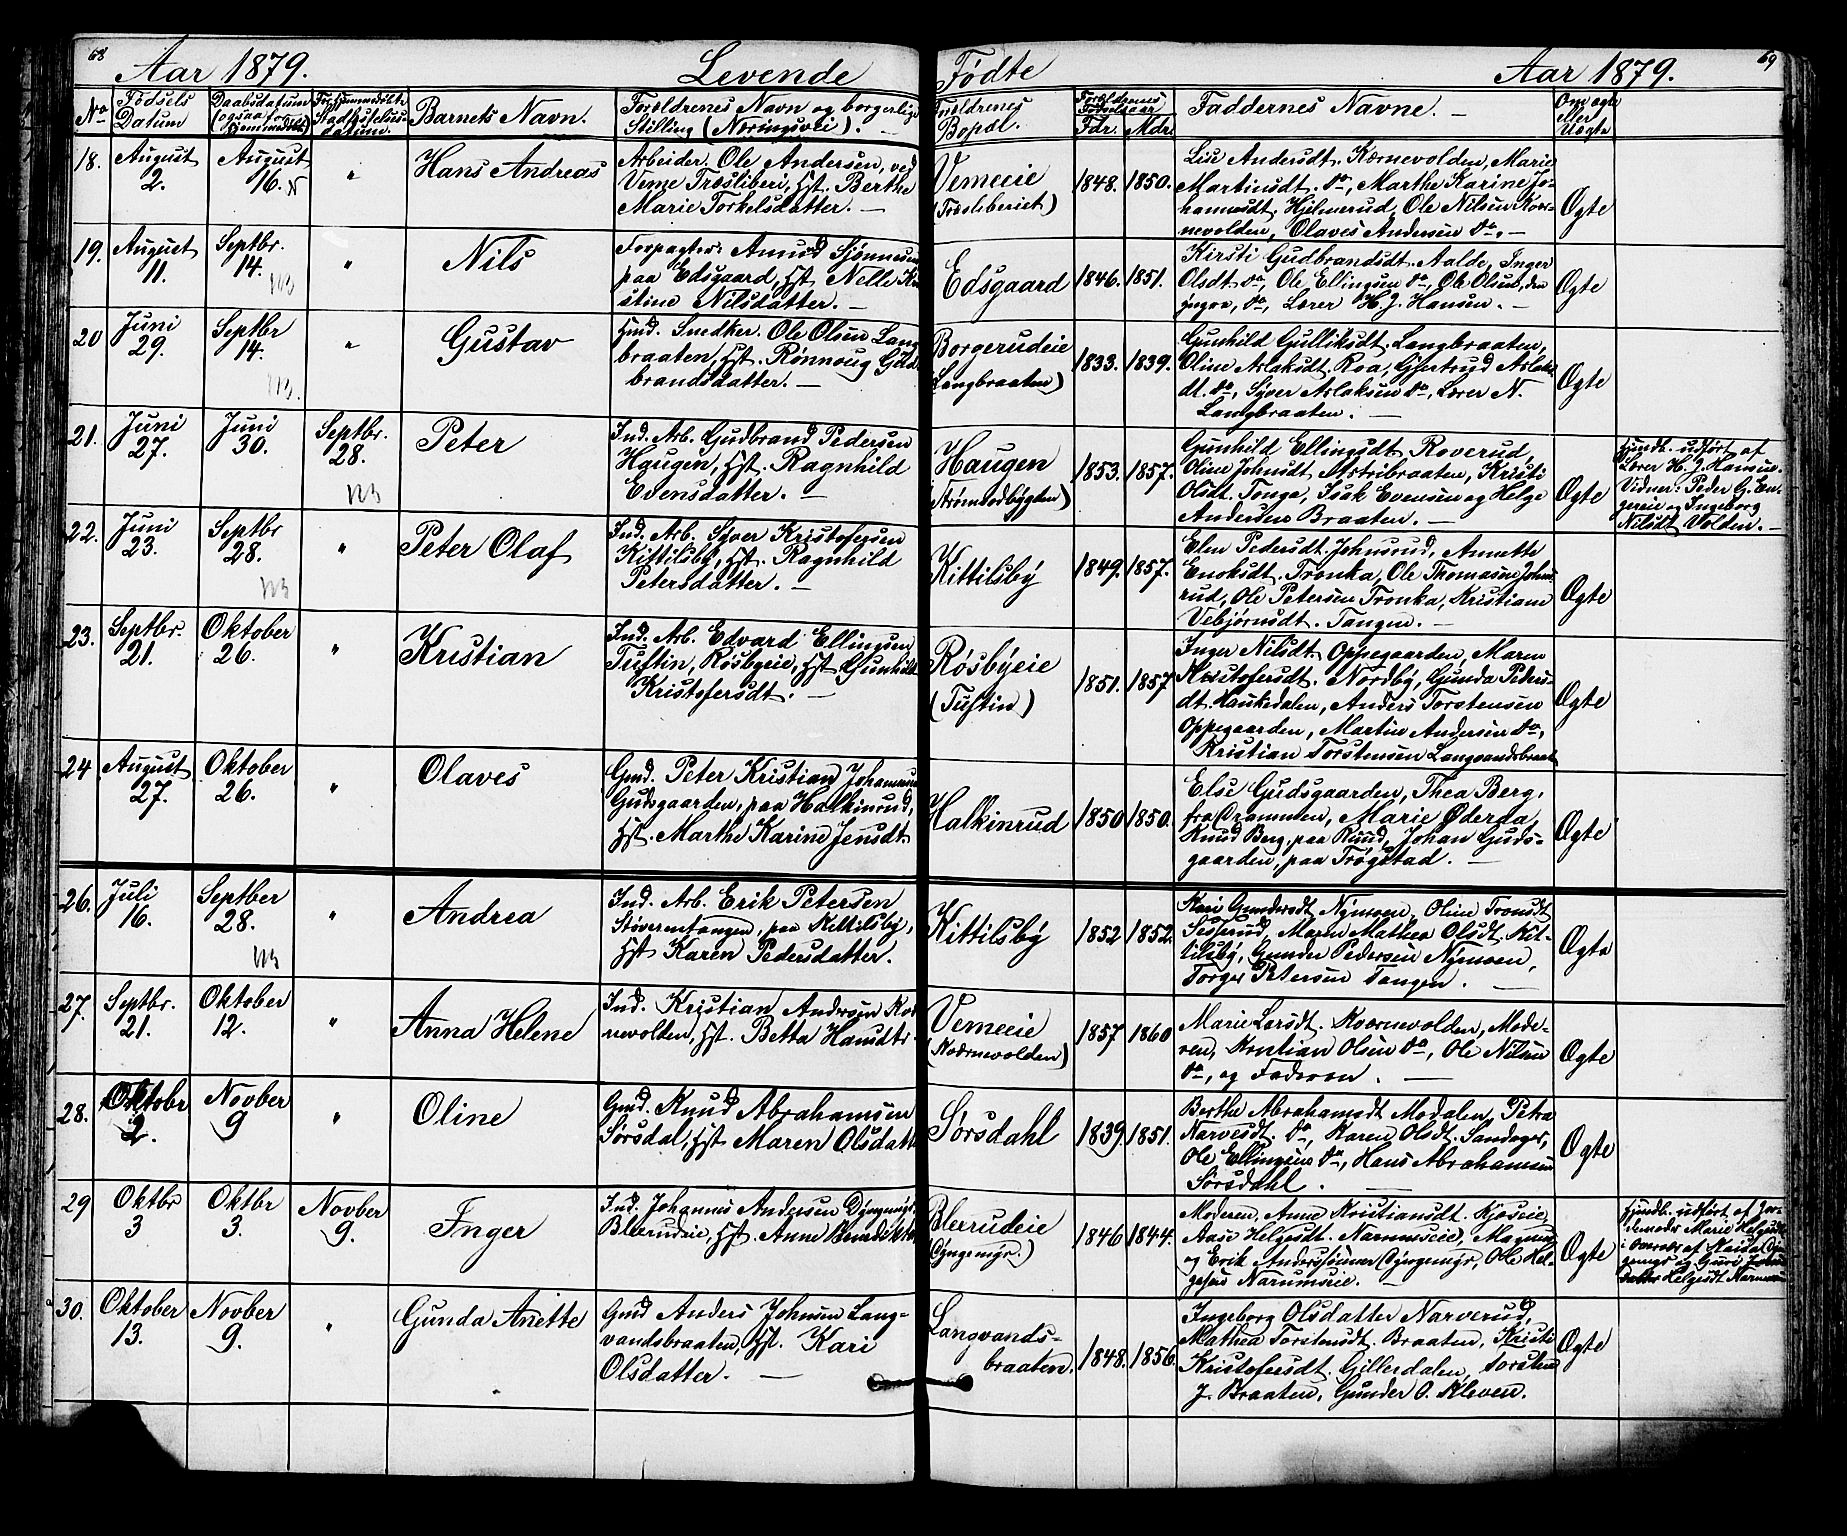 68
Aar 1879.
Levende
Fødte
Aar 1879.
69
No
Fødsels Datum
Daabsdatum (ogsaa for hjemmedøbte)
For Hjemmedøbte Stadfæstelses datum.
Barnets Navn.
Forældrenes Navn og borgerlige Stilling (Næringsvei). —
Forældrenes Bopæl.
Forældrenes Fødselsaar
Fdr. Mdr.
Faddernes Navne. —
Om ægte eller Uægte
18.
August 2.
August 16. N
"
Hans Andreas
Arbeider. Ole Andersen, ved
Venze Træsliberi, Hst. Berthe
Marie Torkelsdatter. —
Vemeeie
(Træsliberiet)
1848. 1850.
Lise Andersdt. Kværnevolden, Marie
Martinsdt. do, Marthe Karine Jo-
hannesdt. Hjelmerud, Ole Nilsen Kvær-
nevolden, Olaves Andersen do. —
Ægte
19.
August 11.
Septbr. 14.
NB
"
Nils
Forpagter. Amund Sjønnesen
paa Edsgaard, Hst. Nelle Kri
stine Nilsdatter. —
Edsgaard
1846. 1851.
Kirsti Gudbrandsdt. Aalde, Inger
Olsdt. do, Ole Ellingsen do, Ole Olsen, den
yngre, do, Lærer H. J. Hansen. —
Ægte
20
Juni 29.
Septbr 14.
NB.
"
Gustav
Hmd. Snedker. Ole Olsen Lang
braaten, Hst. Rønnoug Gud
brandsdatter. —
Borgerudeie
(Langbraaten)
1833. 1839.
Gunhild Gulliksdt. Langbraaten,
Oline Aslaksdt. Roa, Gjertrud Aslaks
dt. do, Syver Aslaksen do, Lærer N.
Langbraaten. —
Ægte
21.
Juni 27.
Juni 30.
Septbr. 28.
NB
Peter
Ind. Arb. Gudbrand Pedersen
Haugen, Hst. Ragnhild
Evensdatter. —
Haugen
(Strømsodbygden)
1853. 1857.
Gunhild Ellingsdt. Roverud,
Oline Johnsdt. Astribraaten, Kristi
Olsdt. Tonga, Isak Evensen og Helge
Andersen Braaten. —
Ægte
Hjmdb. udført af
Lærer H. J. Hansen.
Vidner: Peder G. En-
gereie og Ingeborg
Nilsdt. Volden. —
22.
Juni 23.
Septbr 28.
NB
"
Peter Olaf
Ind. Arb. Syver Kristofersen
Kittilsby, Hst. Ragnhild
Petersdatter. —
Kittilsby
1849. 1857.
Elen Pedersdt. Johnsrud, Annette
Enoksdt. Tronka, Ole Thomasen Johns
rud, Ole Petersen Tronka, Kristiane
Vebjørnsdt. Tangen. —
Ægte
23.
Septbr. 21.
Oktober 26.
"
Kristian
Ind. Arb. Edvard Ellingsen
Tuftin, Røsbyeie, Hst Gunhild
Kristofersdt. —
Røsbyeie
(Tuftin)
1851. 1857
Inger Nilsdt. Oppegaarden, Maren
Kristofersdt. Nordby, Gunda Peters-
dt. Haukedalen, Anders Torstensen
Oppegaarden, Martin Andersen do,
Kristian Torstensen Langvandsbraat
Ægte
24
August 27.
Oktober 26.
"
Olaves
Gmd. Peter Kristian Johannesen
Gudsgaarden, paa Halkinrud,
Hst. Marthe Karine Jensdt.
Halkinrud
1850 1850.
Else Gudsgaarden, Thea Berg,
fra Drammen, Marie Øderaa,
Knud Berg, paa Ruud, Johan Guds-
gaarden, paa Trøgstad. —
Ægte
26.
Juli 16.
Septber 28.
NB
"
Andrea
Ind. Arb. Erik Petersen
Støverentangen, paa Kittilsby,
Hst Karen Pedersdatter.
Kittilsby
1852 1852.
Kari Gundersdt. Nymoen, Oline Tronsdt
Sesserud, Maren Mathea Olsdt. Kit-
tilsby, Gunder Pedersen Nymoen,
Torger Petersen Tangen. —
Ægte
27.
Septbr. 21.
Oktober 12.
"
Anna Helene
Ind. Kristian Andersen Kvær
nevolden, Hst. Betta Hansdtr.
Vemeeie
(Kværnevolden)
1857 1860
Marie Larsdt. Kværnevolden, Mode-
ren, Kristian Olsen do, Ole Nilsen
do, og Faderen. —
Ægte
28.
Oktobr 2.
Novber 9
"
Oline
Gmd. Knud Abrahamsen
Sørsdal, Hst Maren Olsdatt
Sørsdahl
1839. 1851.
Berthe Abrahamsdt Modalen, Petra
Narvesdt. do, Karen Olsdt. Sandager,
Ole Ellingsen do, Hans Abrahamsen
Sørsdahl. —
Ægte
29
Oktbr 3
Oktbr 3.
Novber 9.
Inger
Ind. Johannes Andersen Dyngemyr
Bleerudeie, Hst. Anne
Bleerudeie
(Dyngemyr.)
1846 1844.
Moderen, Anne Kristiansdt. Kjøseie,
Aase Helgesdt. Narumseie, Magnus
og Erik Anderssønner Dyngemyr, Ole Hel-
gesen Narumseie. —
Ægte
Hjmdb. udført af Jor-
demoder Marie Helgesdt
i Overvær af
gemyr og Guri
Helgesdt Narum
30.
Oktober 13.
Novber 9.
"
Gunda Anette
Gmd Anders Johnsen Lang-
vandsbraaten, Hst. Kari
Olsdatter. —
Langvands-
braaten.
1848. 1856.
Ingeborg Olsdatter Narverud,
Mathea Torstensdt. Braaten, Kristi
Kristofersdt. Gillerdalen, Torsten
J. Braaten, Gunder O. Kleven.
Ægte